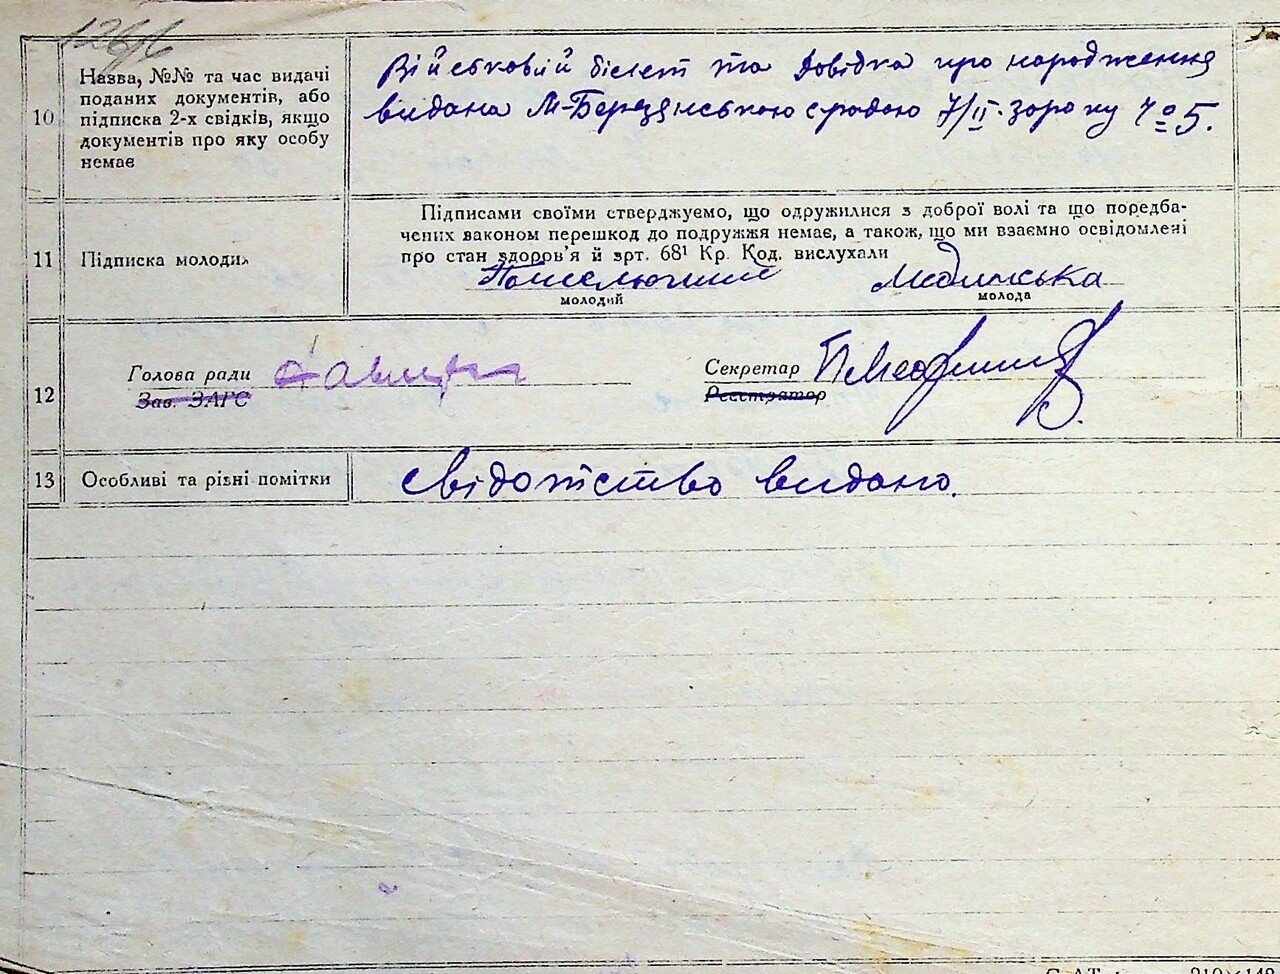 10
Назва, №№ та час видачі
поданих документів, або
підписка 2-х свідків, якщо
документів про яку особу
немає
Військовий білєт та довідка про народження
видана М-Березянською с радою 7/II-30 року № 5.
11
Підписка молодих
Підписами своїми стверджуємо, що одружилися з доброї волі та що поредба-
чених законом перешкод до подружжя немає, а також, що ми взаємно освідомлені
про стан здоров'я й зрт. 68¹ Кр. Код. вислухали
молодий
молода
12
Голова ради
Зав. ЗАГС
Секретар
Реєстратор
13
Особливі та різні помітки
свідотство видано.